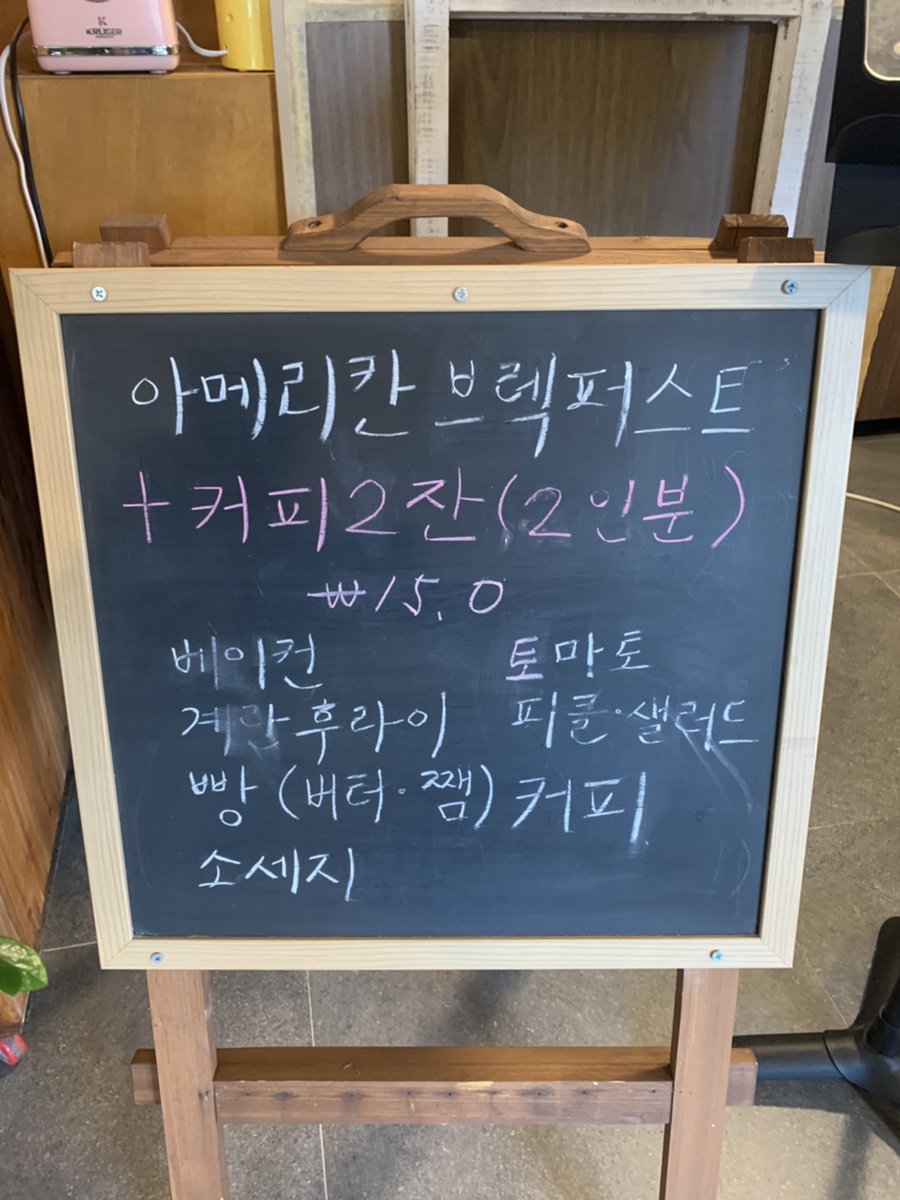 KRUGER
아메리칸 브렉퍼스트
+커피2잔(2인분)
₩15.0
베이컨 토마토
계란후라이 피클·샐러드
빵(버터·쨈) 커피
소세지